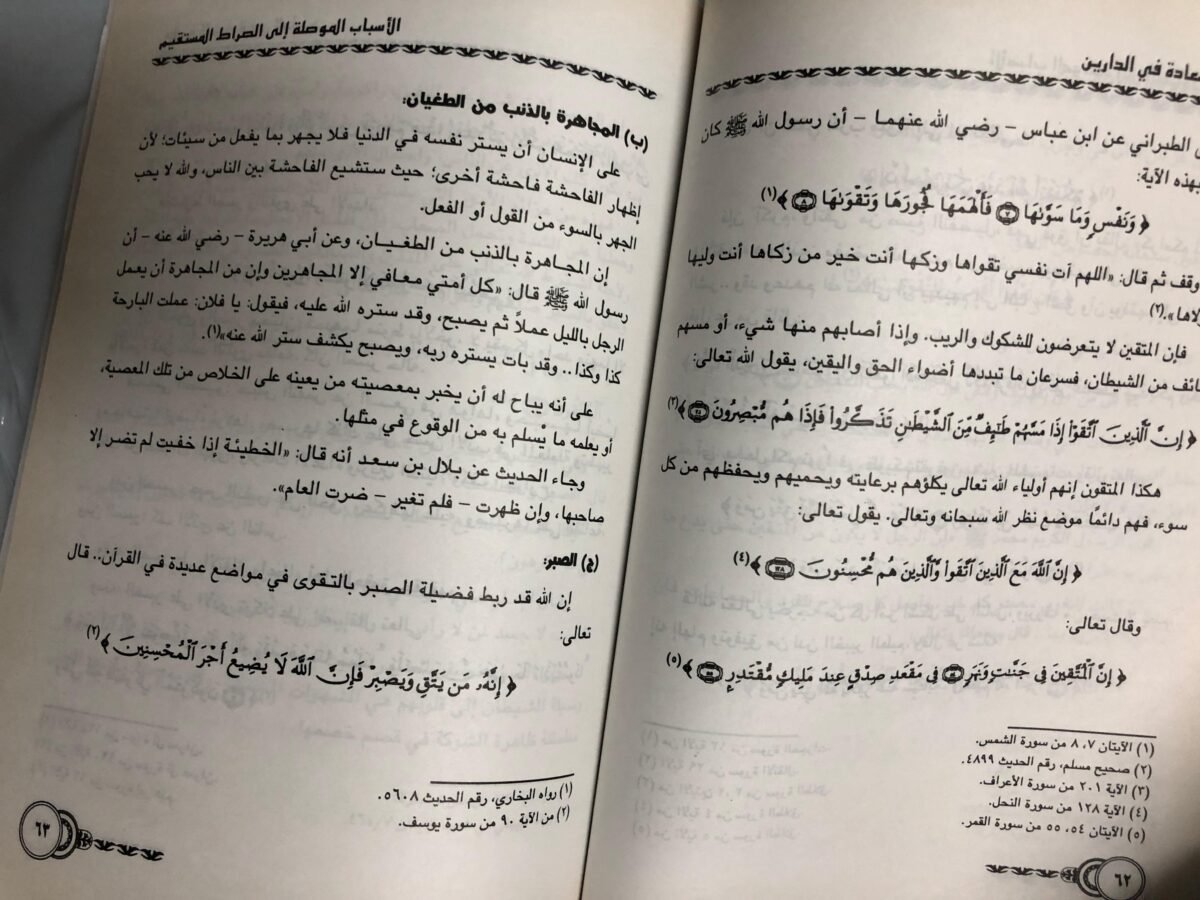 في الدارين
الطبراني عن ابن عباس – رضي الله عنهما – أن رسول الله ﷺ كان
بهذه الآية:
﴿ وَنَفْسٍ وَمَا سَوَّىٰهَا ۝٧ فَأَلْهَمَهَا فُجُورَهَا وَتَقْوَىٰهَا ۝٨ ﴾(١)
وقف ثم قال: «اللهم آت نفسي تقواها وزكها أنت خير من زكاها أنت وليها
».(٢)
فإن المتقين لا يتعرضون للشكوك والريب. وإذا أصابهم منها شيء، أو مسهم
من الشيطان، فسرعان ما تبددها أضواء الحق واليقين، يقول الله تعالى:
﴿ إِنَّ ٱلَّذِينَ ٱتَّقَوْا۟ إِذَا مَسَّهُمْ طَٰٓئِفٌ مِّنَ ٱلشَّيْطَٰنِ تَذَكَّرُوا۟ فَإِذَا هُم مُّبْصِرُونَ ﴾(٣)
هكذا المتقون إنهم أولياء الله تعالى يكلؤهم برعايته ويحميهم ويحفظهم من كل
سوء، فهم دائمًا موضع نظر الله سبحانه وتعالى. يقول تعالى:
﴿ إِنَّ ٱللَّهَ مَعَ ٱلَّذِينَ ٱتَّقَوا۟ وَّٱلَّذِينَ هُم مُّحْسِنُونَ ۝١٢٨ ﴾(٤)
وقال تعالى:
﴿ إِنَّ ٱلْمُتَّقِينَ فِى جَنَّٰتٍ وَنَهَرٍ ۝٥٤ فِى مَقْعَدِ صِدْقٍ عِندَ مَلِيكٍ مُّقْتَدِرٍ ۝٥٥ ﴾(٥)
(١) الآيتان ٧، ٨ من سورة الشمس.
(٢) صحيح مسلم، رقم الحديث ٤٨٩٩.
(٣) الآية ٢٠١ من سورة الأعراف.
(٤) الآية ١٢٨ من سورة النحل.
(٥) الآيتان ٥٤، ٥٥ من سورة القمر.
٦٢
الأسباب الموصلة إلى الصراط المستقيم
(ب) المجاهرة بالذنب من الطغيان:
على الإنسان أن يستر نفسه في الدنيا فلا يجهر بما يفعل من سيئات؛ لأن
إظهار الفاحشة فاحشة أخرى؛ حيث ستشيع الفاحشة بين الناس، والله لا يحب
الجهر بالسوء من القول أو الفعل.
إن المجاهرة بالذنب من الطغيان، وعن أبي هريرة – رضي الله عنه – أن
رسول الله ﷺ قال: «كل أمتي معافي إلا المجاهرين وإن من المجاهرة أن يعمل
الرجل بالليل عملاً ثم يصبح، وقد ستره الله عليه، فيقول: يا فلان: عملت البارحة
كذا وكذا.. وقد بات يستره ربه، ويصبح يكشف ستر الله عنه»(١).
على أنه يباح له أن يخبر بمعصيته من يعينه على الخلاص من تلك المعصية،
أو يعلمه ما يْسلم به من الوقوع في مثلها.
وجاء الحديث عن بلال بن سعد أنه قال: «الخطيئة إذا خفيت لم تضر إلا
صاحبها، وإن ظهرت – فلم تغير – ضرت العام».
(ج) الصبر:
إن الله قد ربط فضيلة الصبر بالتقوى في مواضع عديدة في القرآن.. قال
تعالى:
﴿ إِنَّهُۥ مَن يَتَّقِ وَيَصْبِرْ فَإِنَّ ٱللَّهَ لَا يُضِيعُ أَجْرَ ٱلْمُحْسِنِينَ ﴾(٢)
(١) رواه البخاري، رقم الحديث ٥٦٠٨.
(٢) من الآية ٩٠ من سورة يوسف.
٦٣